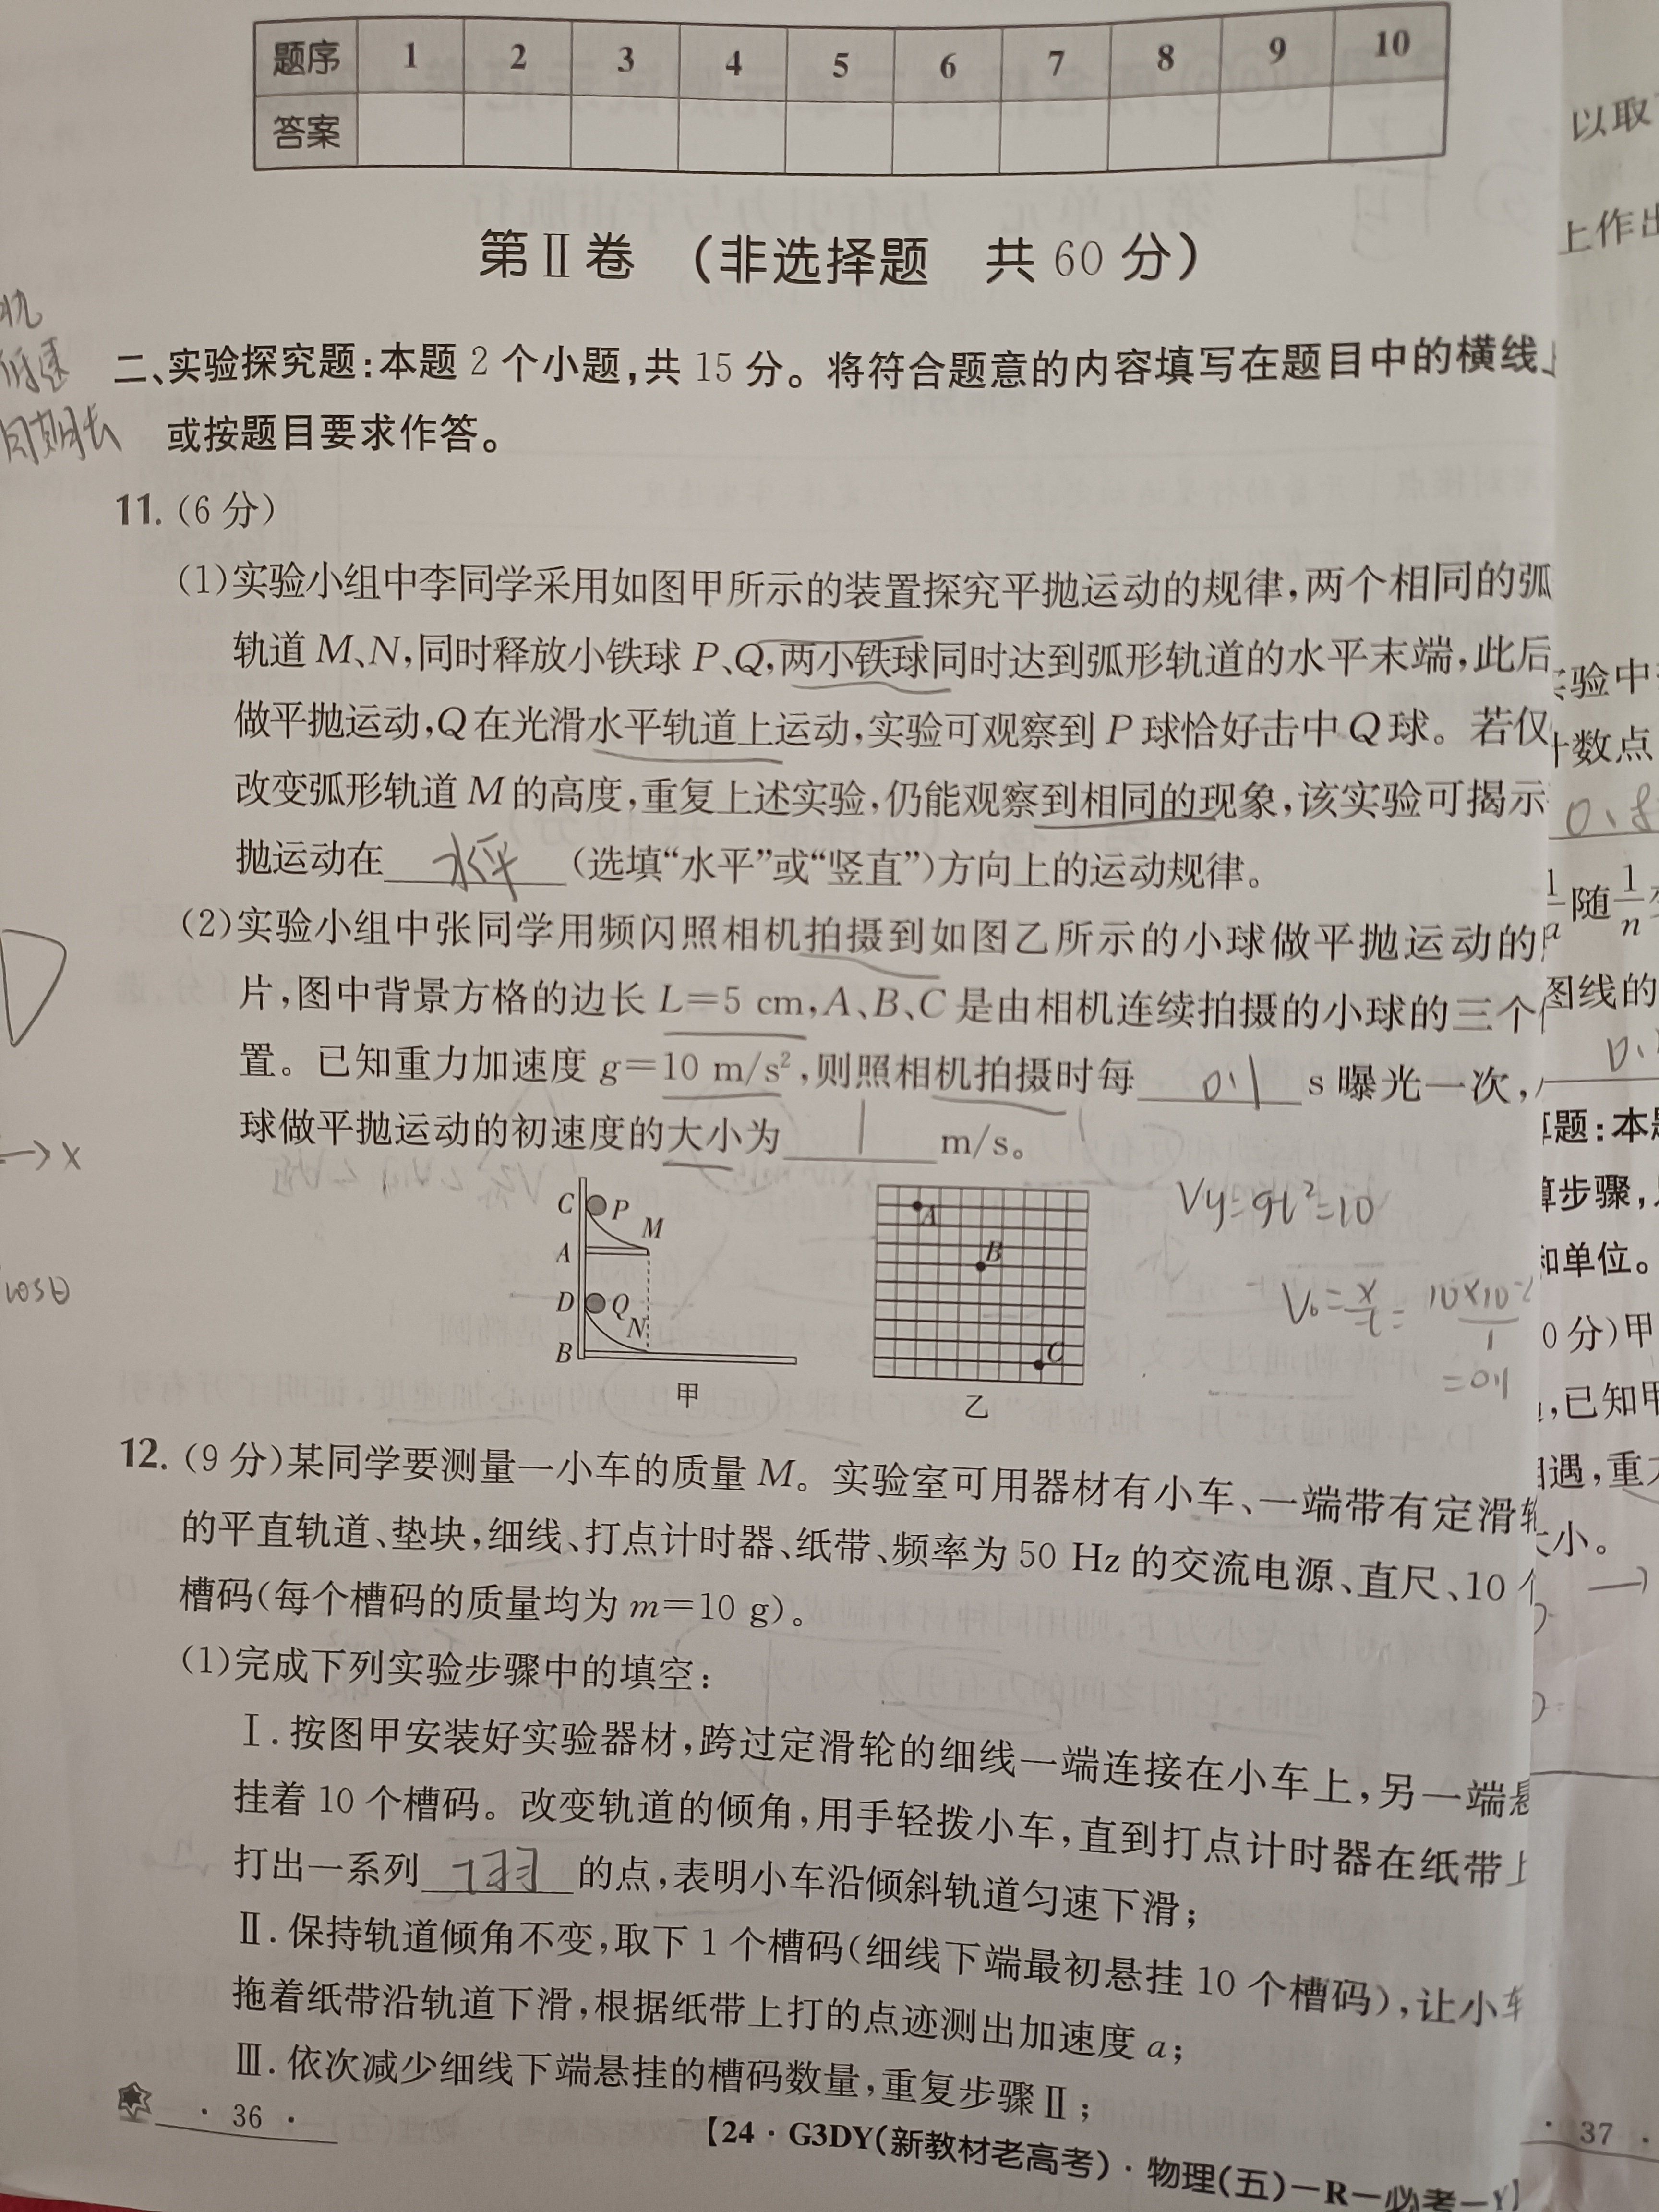 题序 1 2 3 4 5 6 7 8 9 10
答案
第Ⅱ卷 (非选择题 共 60 分)
二、实验探究题:本题 2 个小题,共 15 分。将符合题意的内容填写在题目中的横线上
或按题目要求作答。
11. (6 分)
(1)实验小组中李同学采用如图甲所示的装置探究平抛运动的规律,两个相同的弧
轨道 M、N,同时释放小铁球 P、Q,两小铁球同时达到弧形轨道的水平末端,此后
做平抛运动,Q 在光滑水平轨道上运动,实验可观察到 P 球恰好击中 Q 球。若仅
改变弧形轨道 M 的高度,重复上述实验,仍能观察到相同的现象,该实验可揭示
抛运动在 水平 (选填“水平”或“竖直”)方向上的运动规律。
(2)实验小组中张同学用频闪照相机拍摄到如图乙所示的小球做平抛运动的
片,图中背景方格的边长 L=5 cm,A、B、C 是由相机连续拍摄的小球的三个
置。已知重力加速度 g=10 m/s²,则照相机拍摄时每 0.1 s 曝光一次,
球做平抛运动的初速度的大小为 1 m/s。
C P M
A
D Q N
B
甲
A
B
C
乙
Vy=gt²=10
V₀=x/t=
=0.1
12. (9 分)某同学要测量一小车的质量 M。实验室可用器材有小车、一端带有定滑轮
的平直轨道、垫块,细线、打点计时器、纸带、频率为 50 Hz 的交流电源、直尺、10 个
槽码(每个槽码的质量均为 m=10 g)。
(1)完成下列实验步骤中的填空:
Ⅰ. 按图甲安装好实验器材,跨过定滑轮的细线一端连接在小车上,另一端悬
挂着 10 个槽码。改变轨道的倾角,用手轻拨小车,直到打点计时器在纸带上
打出一系列 的点,表明小车沿倾斜轨道匀速下滑;
Ⅱ. 保持轨道倾角不变,取下 1 个槽码(细线下端最初悬挂 10 个槽码),让小车
拖着纸带沿轨道下滑,根据纸带上打的点迹测出加速度 a;
Ⅲ. 依次减少细线下端悬挂的槽码数量,重复步骤Ⅱ;
· 36 ·
【24 · G3DY(新教材老高考) · 物理(五)—R—必考—Y】
低速
周期长
→x
cosθ
以取
上作出
实验中
计数点
0.8
1/a 随 1/n
图线的
算题:本题
算步骤,
和单位。
0 分)甲
,已知甲
相遇,重
大小。
· 37 ·